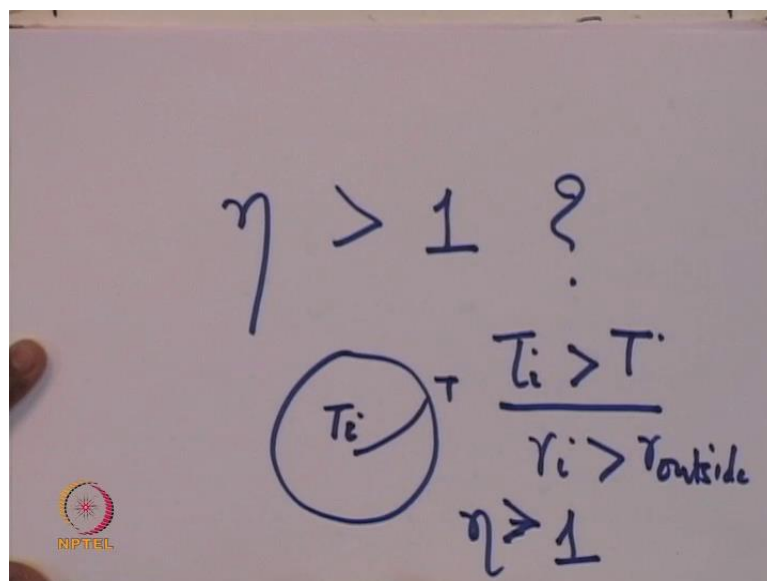 η > 1 ?
Ti > T
Ti T
ri > routside
η ≥ 1
NPTEL